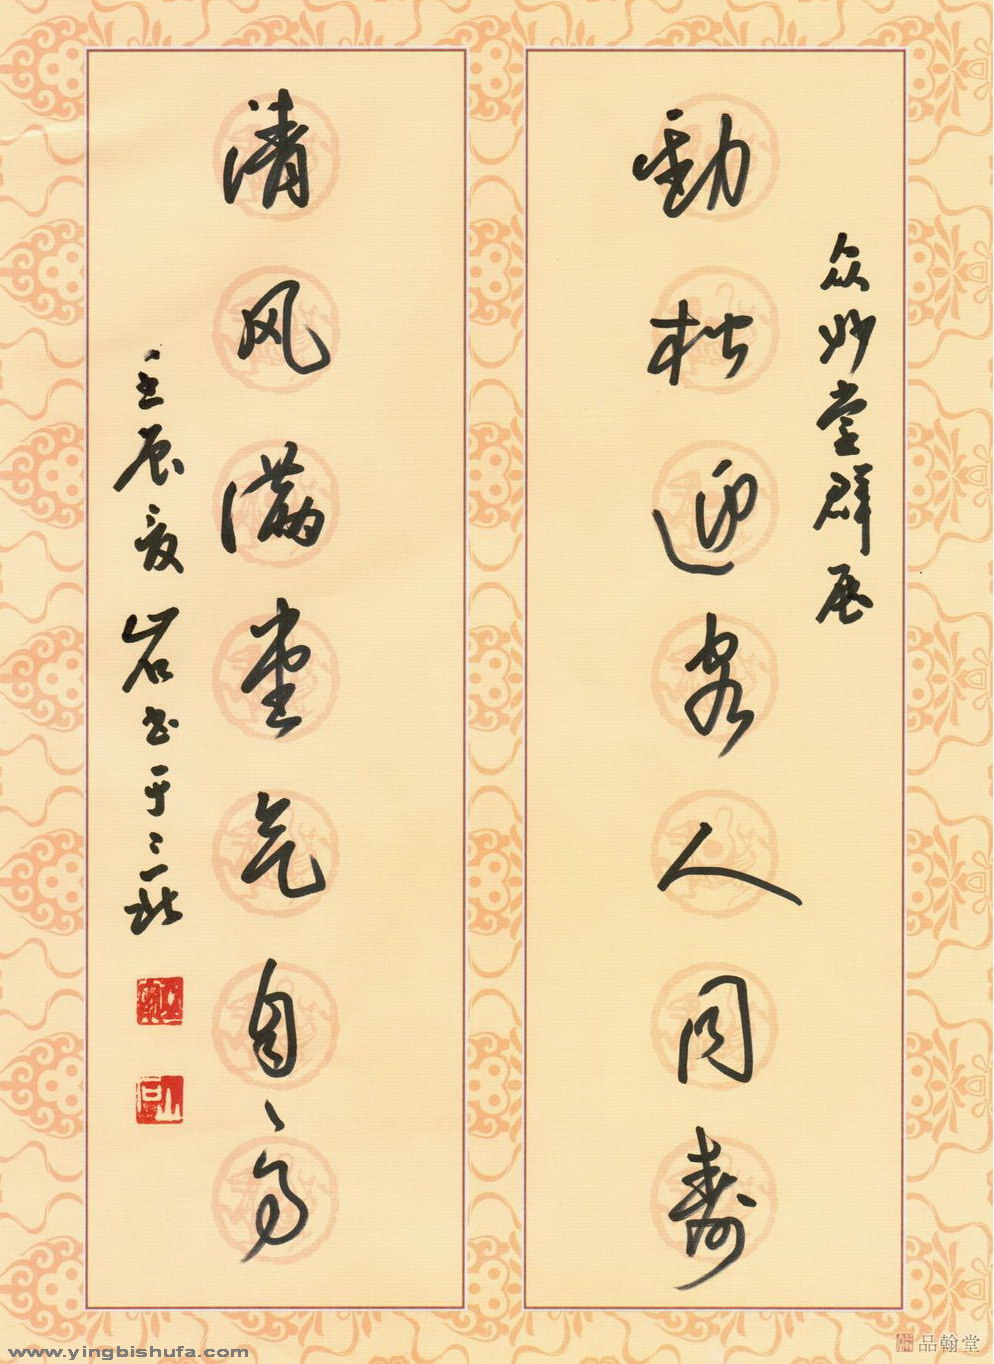 众妙堂群展
劲松迎客人同寿
清风满堂气自高
壬辰夏岩书于
www.yingbishufa.com
品翰堂